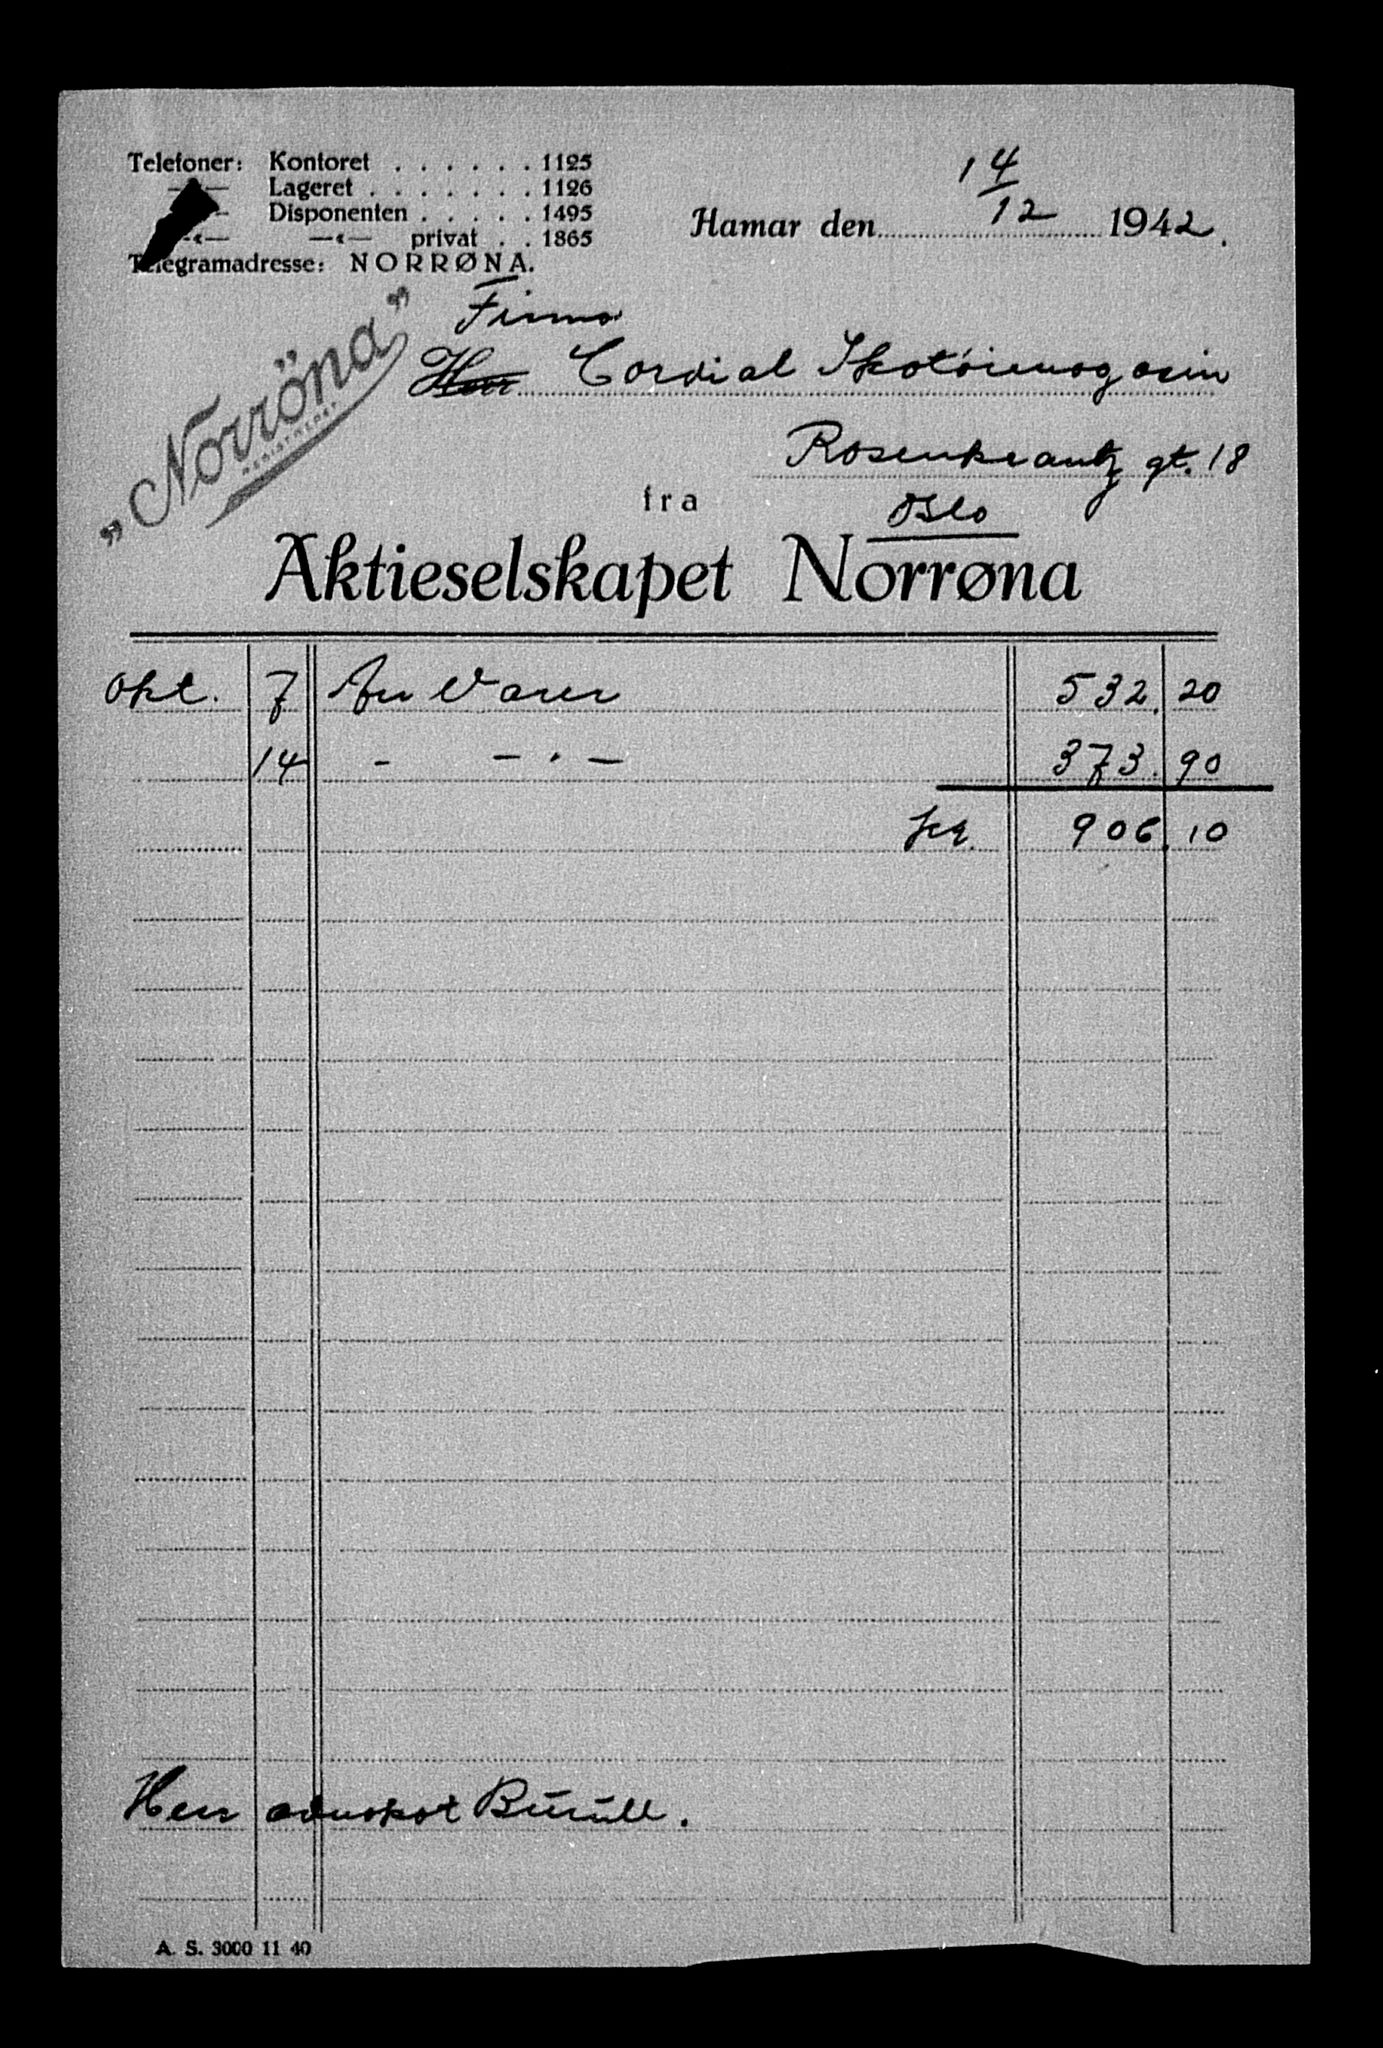 Telefoner: Kontoret . . . . . . 1125
—«— Lageret . . . . . . . 1126
—«— Disponenten . . . . . 1495
—«— —«— privat . . 1865
Telegramadresse: NORRØNA.
Hamar den 14/12 1942.
„Norröna”
REGISTRERT
Firma
Herr Cordial Skotøimagasin
Rosenkrantz gt. 18
Oslo
fra
Aktieselskapet Norrøna
Okt. 7 An Varer 532.20
14 - - . - 373.90
kr. 906.10
Herr advokat
A. S. 3000 11 40